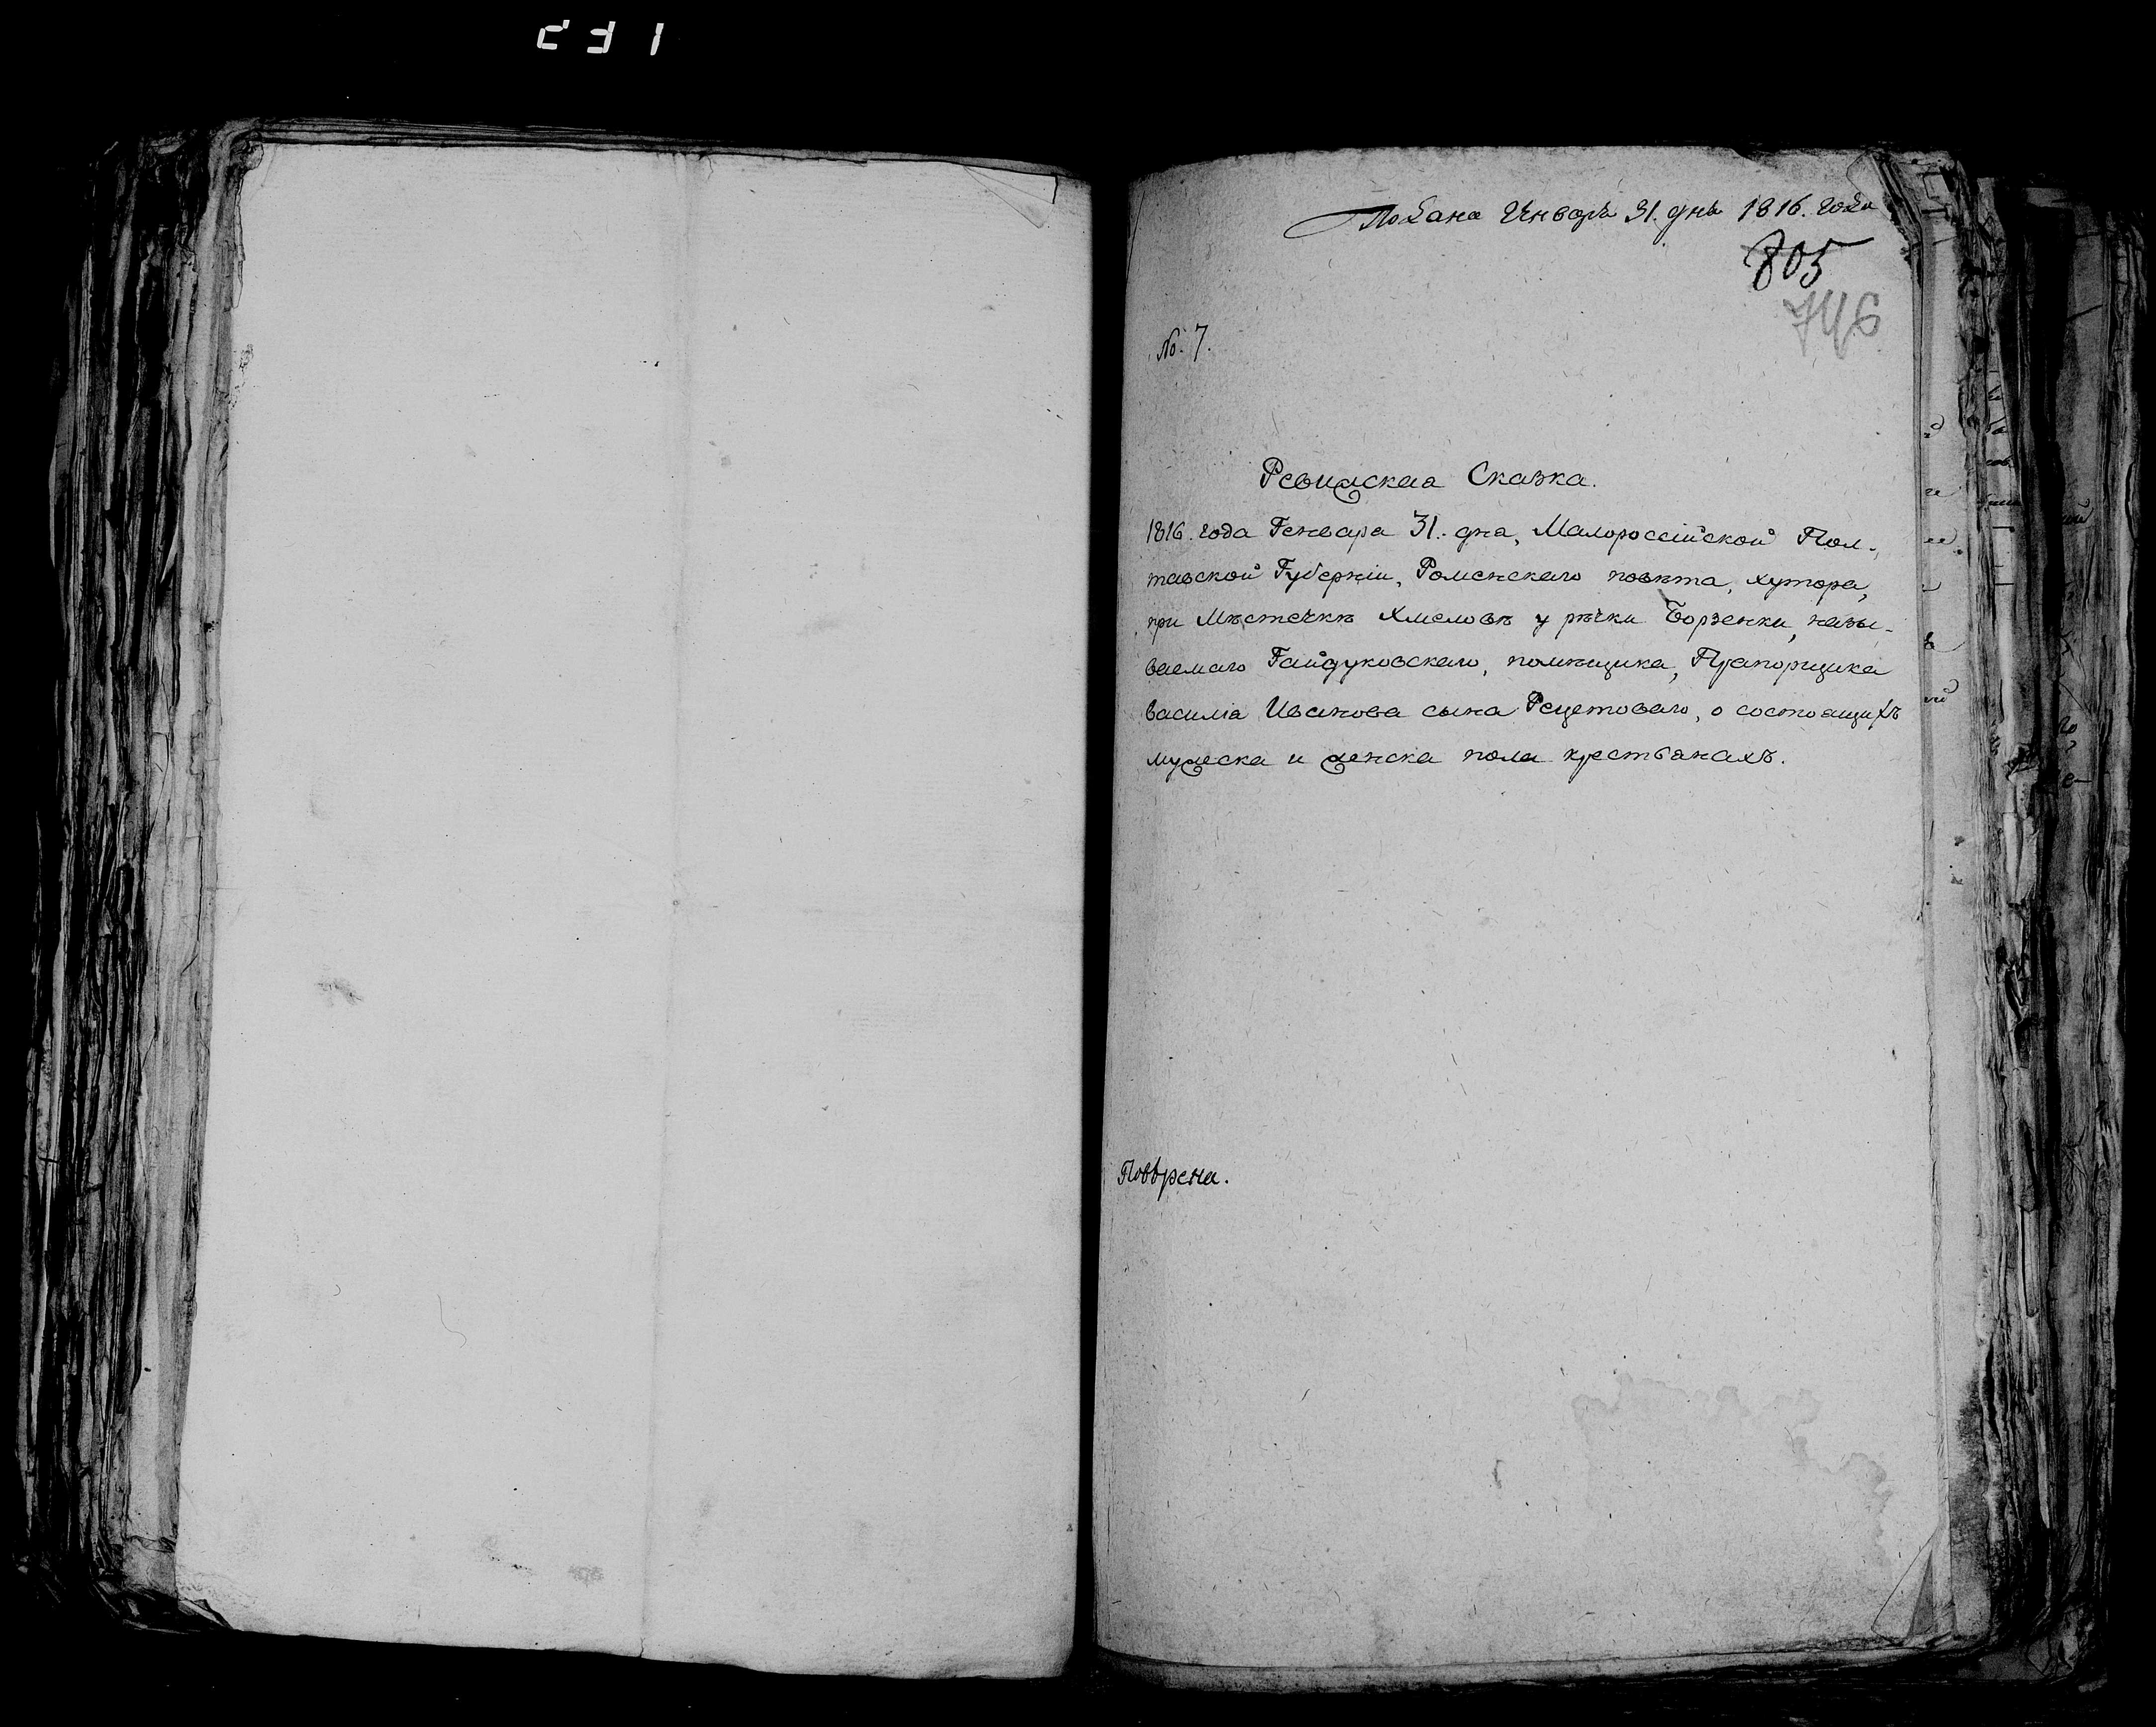 Подана Генваря 31. дня 1816. года
805
746
No. 7.
Ревижская Сказка.
1816. года Генваря 31. дня, Малороссійской Пол-
тавской Губерніи, Роменскаго повѣта, хутора,
при Мѣстечкѣ Хмеловѣ у рѣчки Борзенки, назы-
ваемаго Гайдуковскаго, помѣщика, Прапорщика
Василія Иванова сына Рецетоваго, о состоящихъ
мужеска и женска пола крестьянахъ.
Повѣрена.